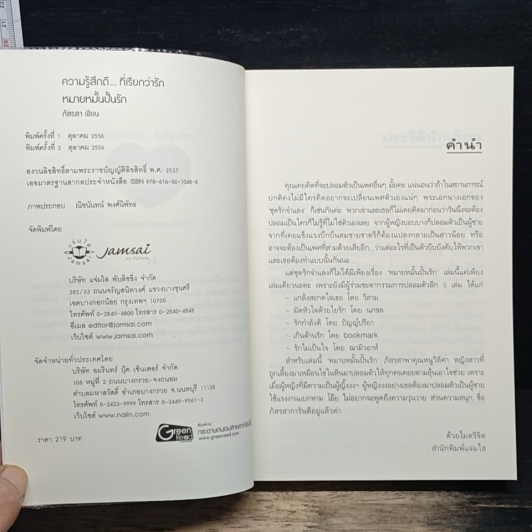 ความรู้สึกดี... ที่เรียกว่ารัก
หมายหมั้นปั้นรัก
ภัสรสา เขียน
พิมพ์ครั้งที่ 1 ตุลาคม 2556
พิมพ์ครั้งที่ 2 ตุลาคม 2556
สงวนลิขสิทธิ์ตามพระราชบัญญัติลิขสิทธิ์ พ.ศ. 2537
เลขมาตรฐานสากลประจำหนังสือ ISBN 978-616-06-1048-8
ภาพประกอบ ณิชนันทน์ พงศ์นิพัทธ
จัดพิมพ์โดย
jamsai
บริษัท แจ่มใส พับลิชชิ่ง จำกัด
285/33 ถนนจรัญสนิทวงศ์ แขวงบางขุนศรี
เขตบางกอกน้อย กรุงเทพฯ 10700
โทรศัพท์ 0-2840-4800 โทรสาร 0-2840-4848
อีเมล editor@jamsai.com
เว็บไซต์ www.jamsai.com
จัดจำหน่ายทั่วประเทศโดย
บริษัท อมรินทร์ บุ๊ค เซ็นเตอร์ จำกัด
108 หมู่ที่ 2 ถนนบางกรวย-จงถนอม
ตำบลมหาสวัสดิ์ อำเภอบางกรวย จ.นนทบุรี 11130
โทรศัพท์ 0-2423-9999 โทรสาร 0-2449-9561-3
เว็บไซต์ www.naiin.com
ราคา 219 บาท
Green Read
www.greenread.com
คำนำ
คุณเคยคิดที่จะปลอมตัวเป็นเพศอื่นๆ มั้ยคะ แน่นอนว่าถ้าในสถานการณ์
ปกติคงไม่มีใครคิดอยากจะเปลี่ยนเพศตัวเองแน่ๆ พระเอกนางเอกของ
'ชุดรักจำแลง' ก็เช่นกันค่ะ พวกเขาและเธอก็ไม่เคยคิดมาก่อนว่าวันนึงจะต้อง
ปลอมเป็นใครก็ไม่รู้ที่ไม่ใช่ตัวเองเลย จากผู้หญิงบอบบางก็ต้องปลอมตัวเป็นผู้ชาย
จากที่เคยแข็งแรงบึกบึนสมชายชาตรีก็ต้องแปลงกลายเป็นสาวน้อย หรือ
อาจจะต้องเป็นเพศที่สามด้วยเสียอีก...ว่าแต่อะไรที่เป็นตัวบีบบังคับให้พวกเขา
และเธอต้องทำแบบนั้นกันนะ...
แต่ชุดรักจำแลงก็ไม่ได้มีเพียงเรื่อง 'หมายหมั้นปั้นรัก' เล่มนี้แค่เพียง
เล่มเดียวนะคะ เพราะยังมีผู้ร่วมชะตากรรมการปลอมตัวอีก 5 เล่ม ได้แก่
- แกล้งสะกดใจเธอ โดย วิสาม
- มัดหัวใจด้วยใยรัก โดย นภชล
- รักกำลังดี โดย ปัญญ์ปรียา
- เกินต้านรัก โดย bookmark
- รักไม่เป็นใจ โดย ฌามิวอาห์
สำหรับเล่มนี้ 'หมายหมั้นปั้นรัก' ภัสรสาพาคุณหนูวิสิฬา หญิงสาวที่
ด้วยไมตรีจิต
สำนักพิมพ์แจ่มใส